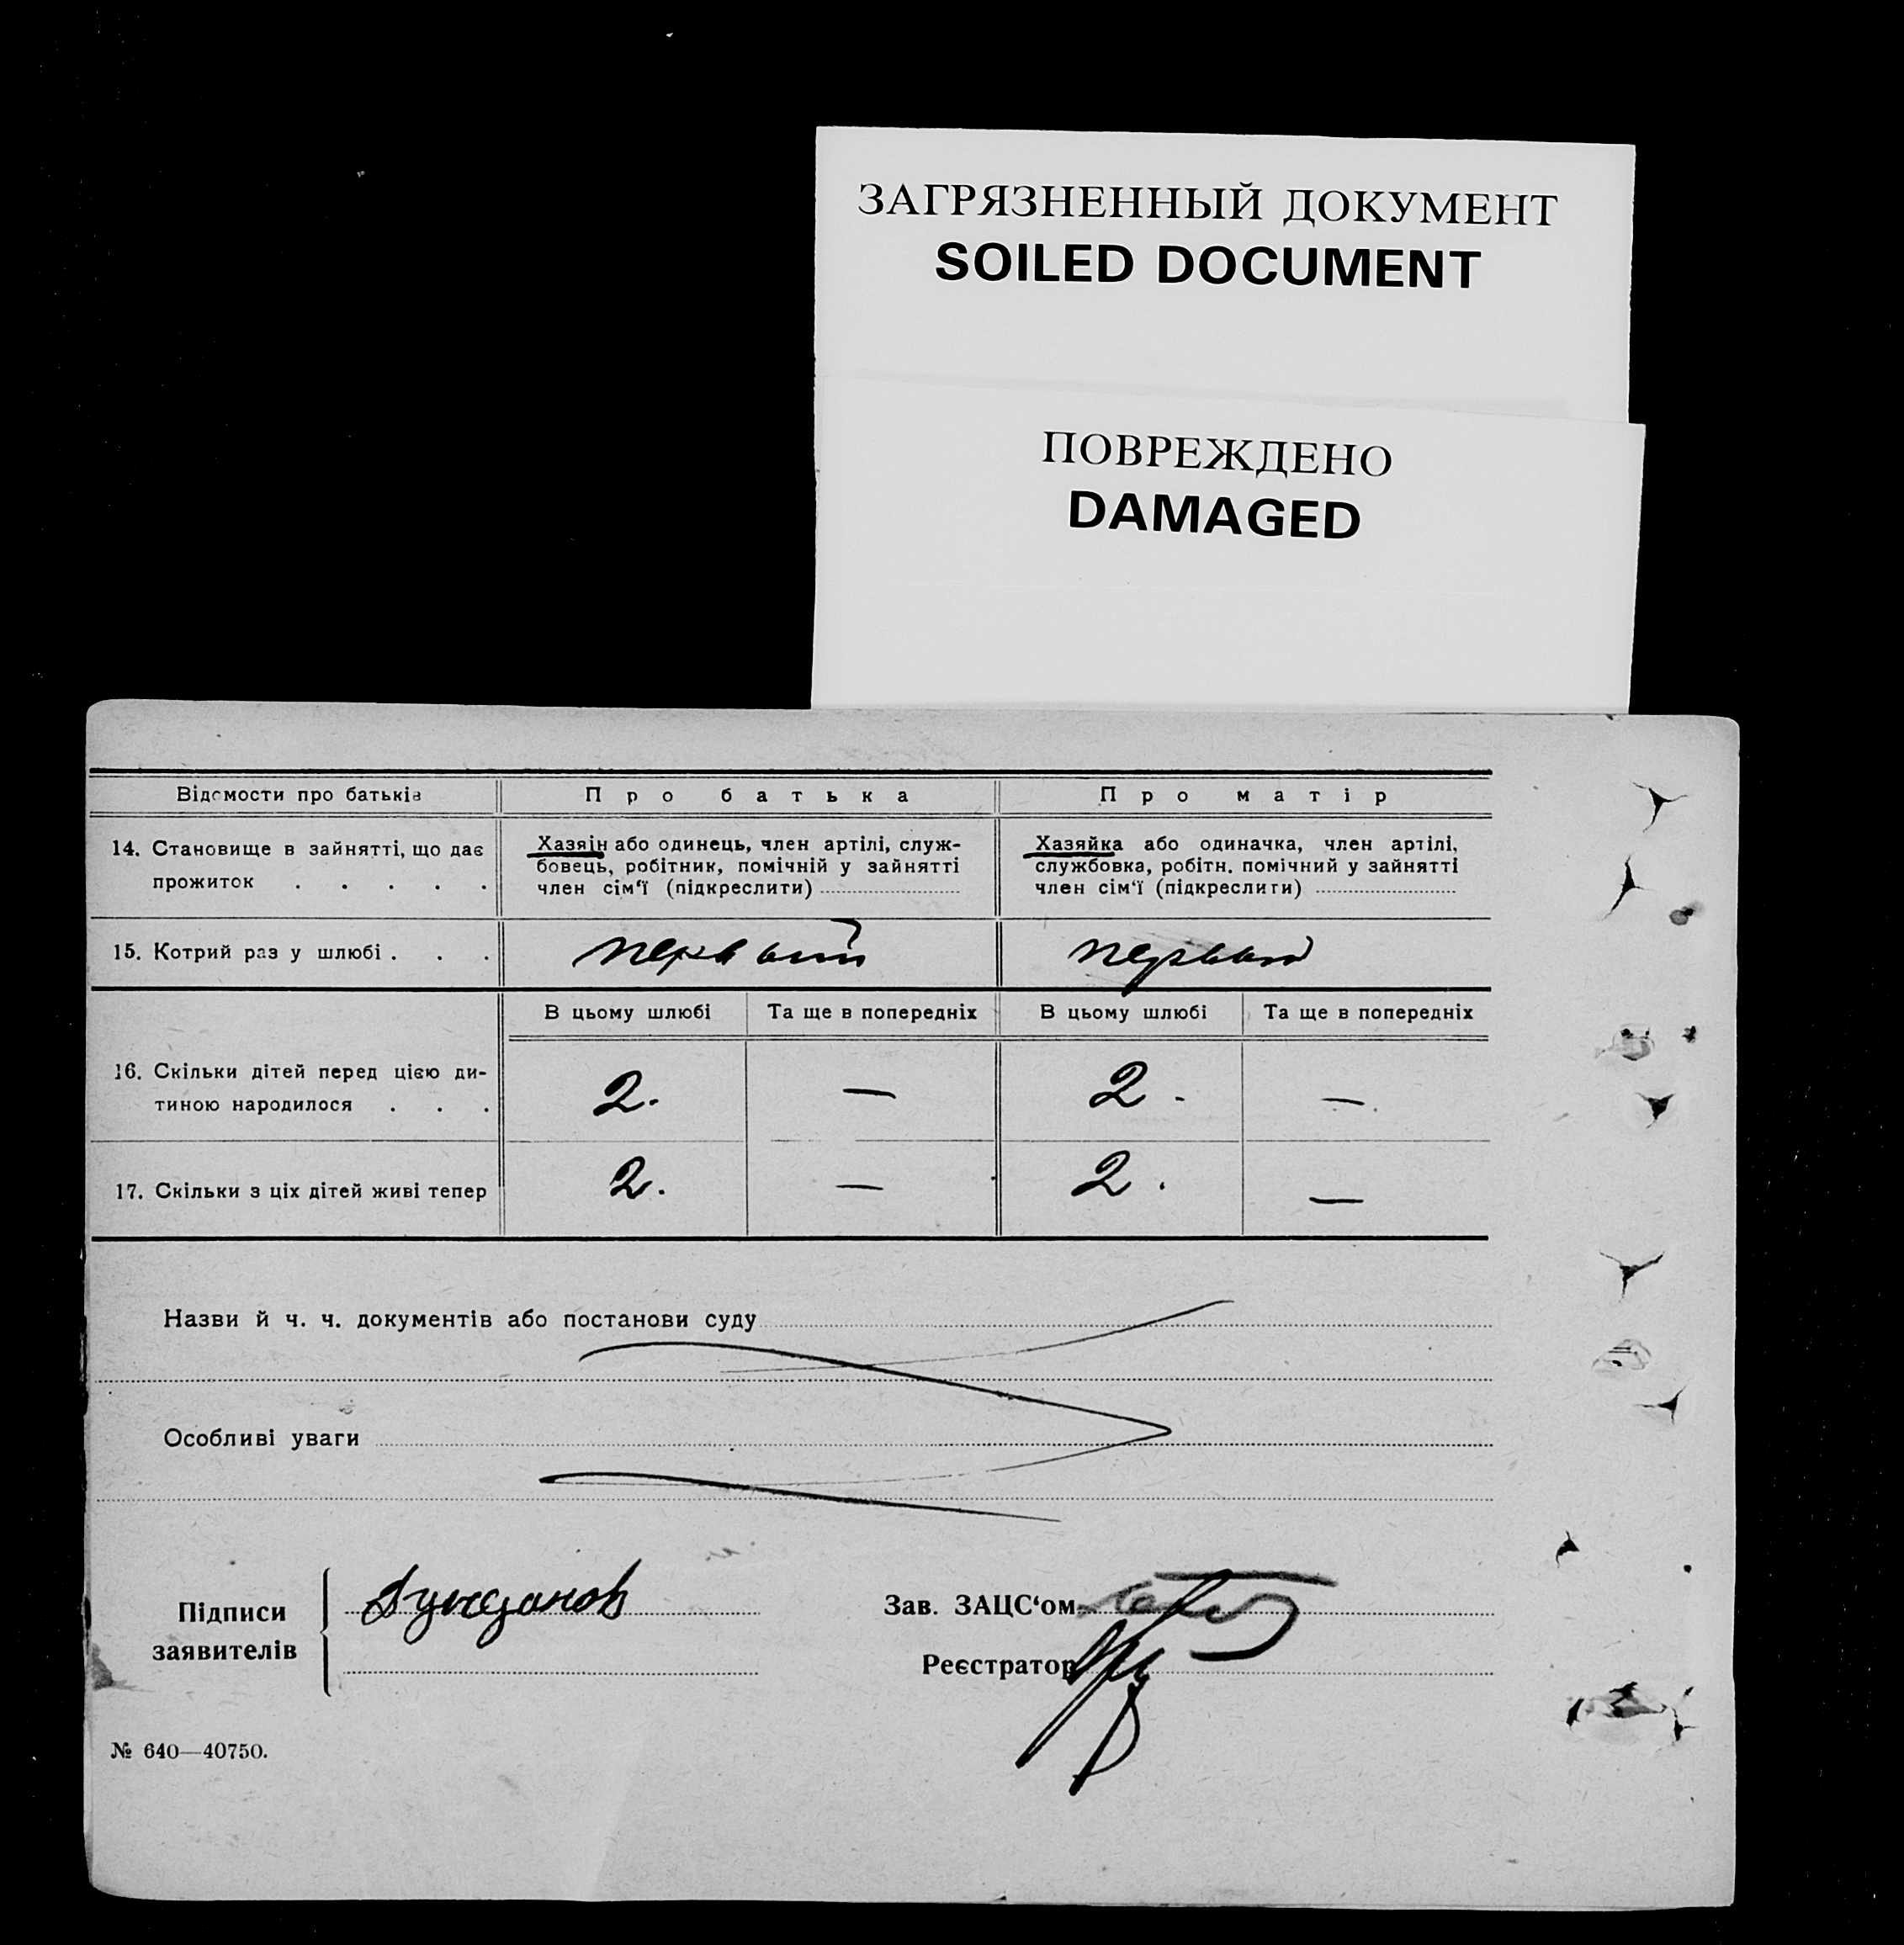 ЗАГРЯЗНЕННЫЙ ДОКУМЕНТ
SOILED DOCUMENT
ПОВРЕЖДЕНО
DAMAGED
Відомости про батьків
Про батька
Про матір
14. Становище в зайнятті, що дає
прожиток . . . . .
Хазяін або одинець, член артілі, служ-
бовець, робітник, помічній у зайнятті
член сім‘ї (підкреслити)
Хазяйка або одиначка, член артілі,
службовка, робітн. помічний у зайнятті
член сім‘ї (підкреслити)
15. Котрий раз у шлюбі . . .
первый
первый
В цьому шлюбі
Та ще в попередніх
В цьому шлюбі
Та ще в попередніх
16. Скільки дітей перед цією ди-
тиною народилося . . .
2.
—
2.
—
17. Скільки з ціх дітей живі тепер
2.
—
2.
—
Назви й ч. ч. документів або постанови суду
Особливі уваги
Підписи
заявителів
Зав. ЗАЦС‘ом
Реєстратор
№ 640—40750.